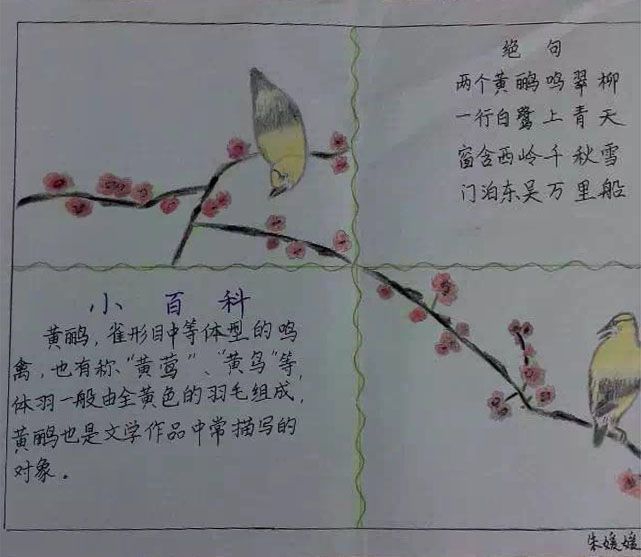 绝句
两个黄鹂鸣翠柳
一行白鹭上青天
窗含西岭千秋雪
门泊东吴万里船
小百科
黄鹂，雀形目中等体型的鸣
禽，也有称“黄莺”、“黄鸟”等，
体羽一般由全黄色的羽毛组成，
黄鹂也是文学作品中常描写的
对象。
朱媛媛